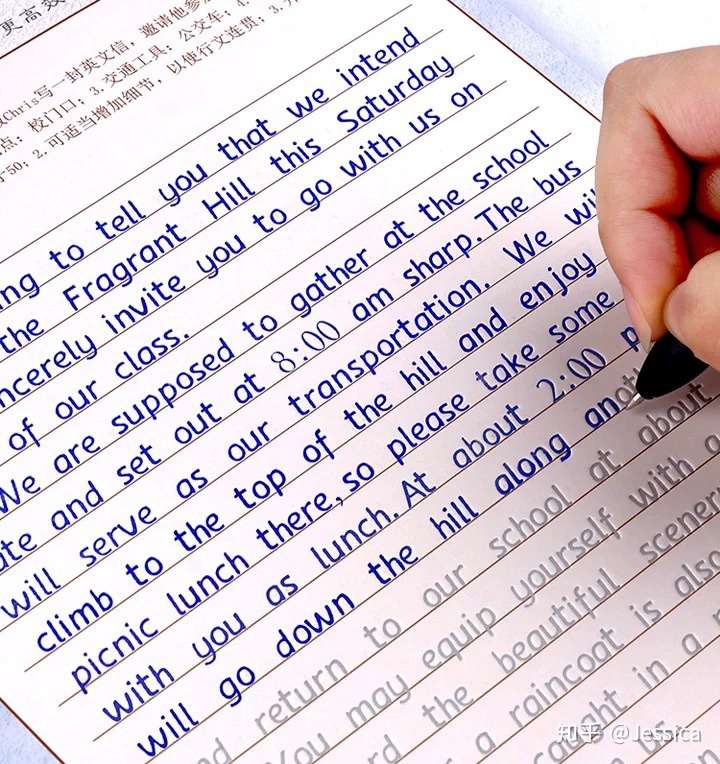 更高效
Chris写一封英文信，邀请他参
点：校门口；3.交通工具：公交车；4.
50；2.可适当增加细节，以使行文连贯；3.
ing to tell you that we intend
the Fragrant Hill this Saturday
ncerely invite you to go with us on
of our class.
We are supposed to gather at the school
ate and set out at 8:00 am sharp. The bus
will serve as our transportation. We wil
climb to the top of the hill and enjoy
picnic lunch there, so please take some
with you as lunch. At about 2:00 p
will go down the hill along anoth
nd return to our school at about
You may equip yourself with a
rd the beautiful scener
a raincoat is also
caught in a
知乎 @Jessica